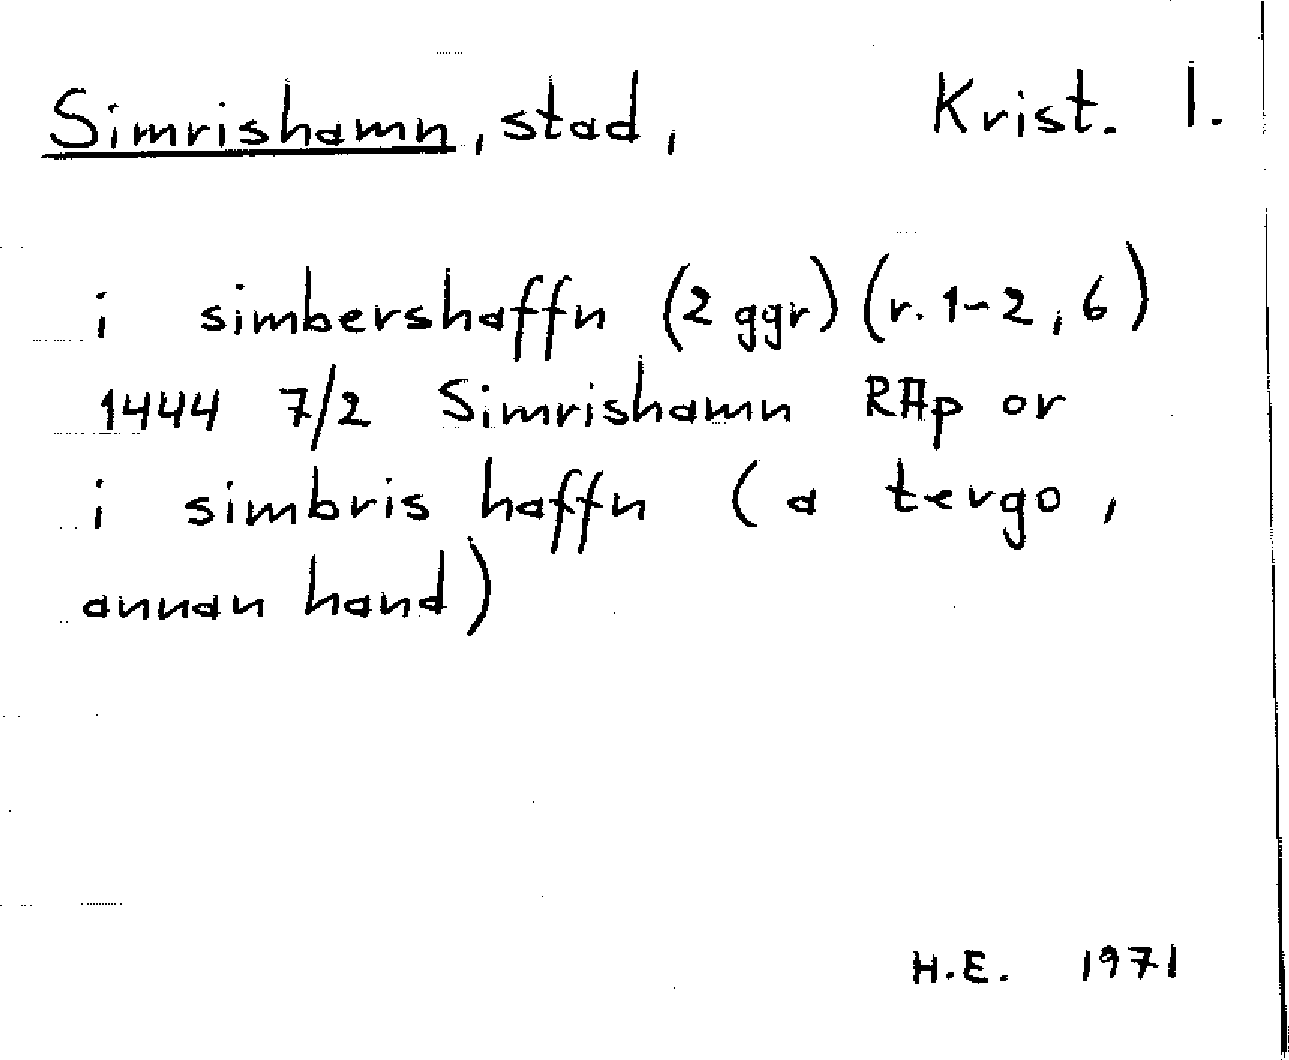 Simrishamn, stad, Krist. l.
i simbershaffn (2 ggr) (r. 1-2, 6)
1444 7/2 Simrishamn RAp or
i simbris haffn (a tergo,
annan hand)
H.E. 1971